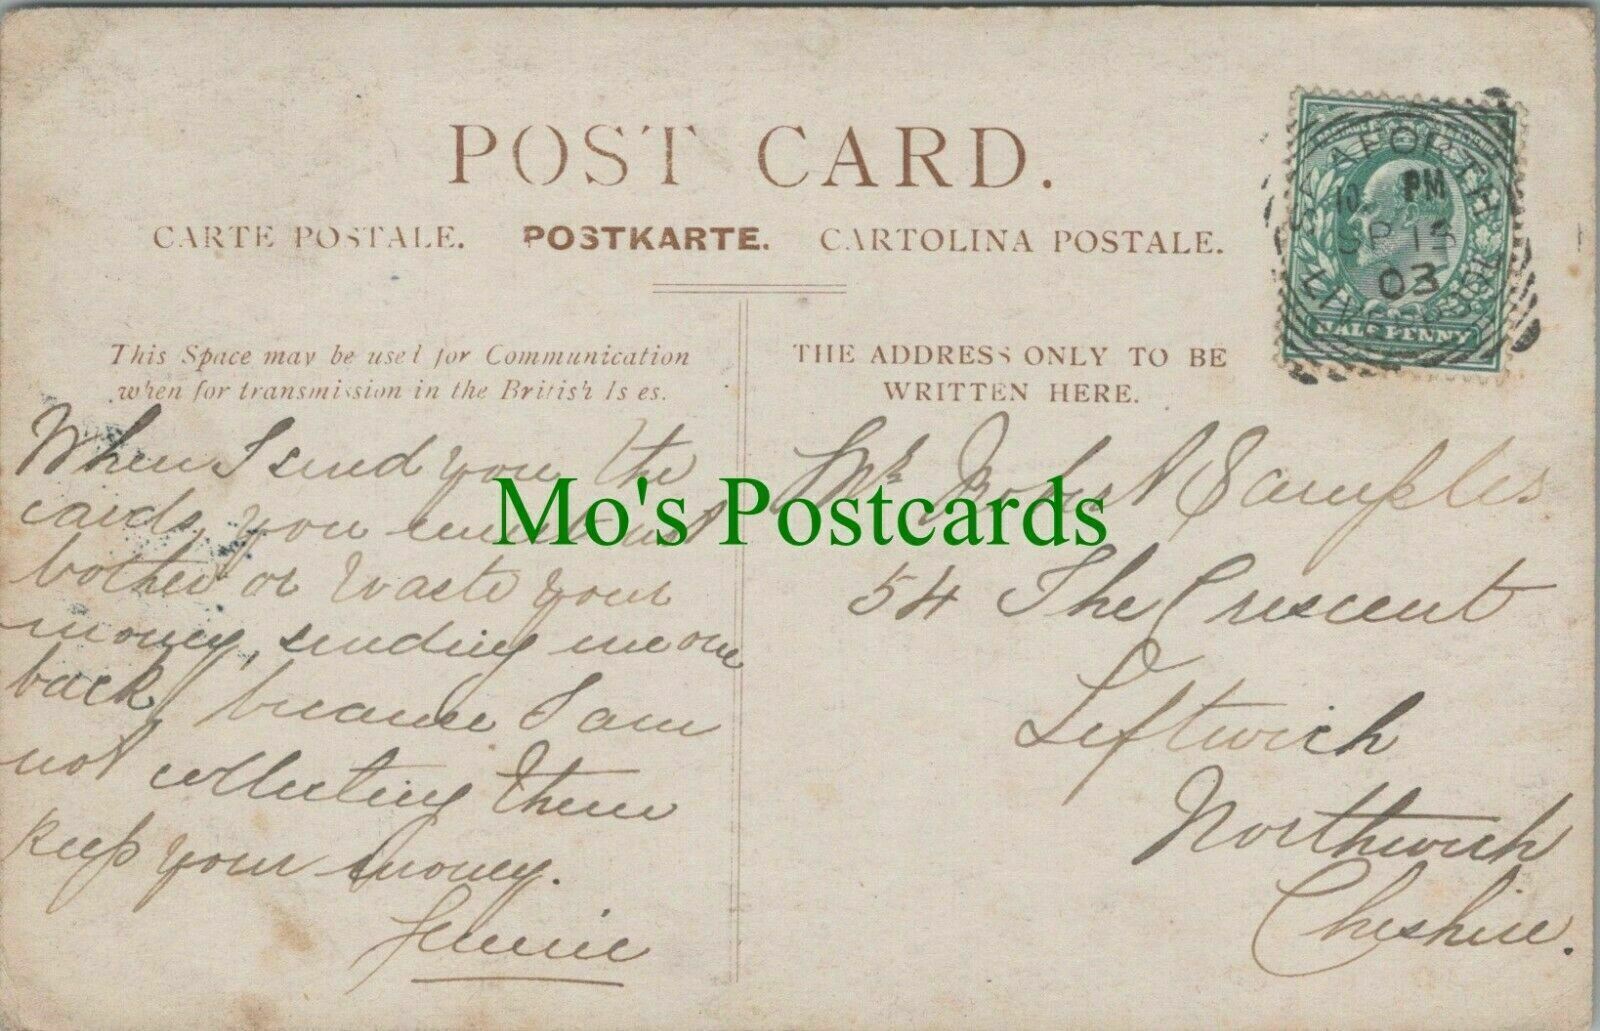 POST CARD.
CARTE POSTALE. POSTKARTE. CARTOLINA POSTALE.
This Space may be used for Communication
when for transmission in the British Isles.
THE ADDRESS ONLY TO BE
WRITTEN HERE.
SEAFORTH
10 PM
SP 15
03
LIVERPOOL
HALFPENNY
When I send you the
cards, you must not
bother or waste your
money, sending me one
back, because I am
not collecting them
keep your money.
Jennie
Mr Robert Samples
54 The Crescent
Leftwich
Northwich
Cheshire.
Mo's Postcards